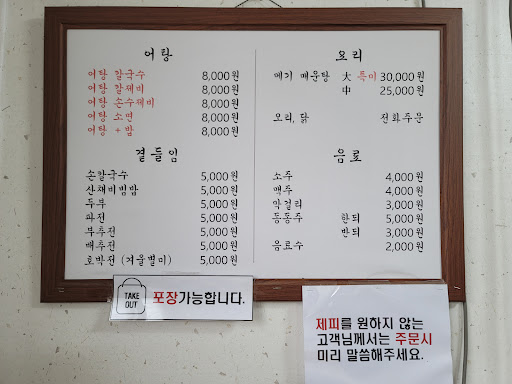 어탕
어탕 칼국수 8,000원
어탕 칼제비 8,000원
어탕 손수제비 8,000원
어탕 소면 8,000원
어탕 + 밥 8,000원
곁들임
손칼국수 5,000원
산채비빔밥 5,000원
두부 5,000원
파전 5,000원
부추전 5,000원
배추전 5,000원
호박전 (겨울별미) 5,000원
요리
메기 매운탕 大 특이 30,000원
中 25,000원
오리, 닭 전화주문
음료
소주 4,000원
맥주 4,000원
막걸리 3,000원
동동주 한되 5,000원
반되 3,000원
음료수 2,000원
TAKE
OUT
포장가능합니다.
제피를 원하지 않는
고객님께서는 주문시
미리 말씀해주세요.